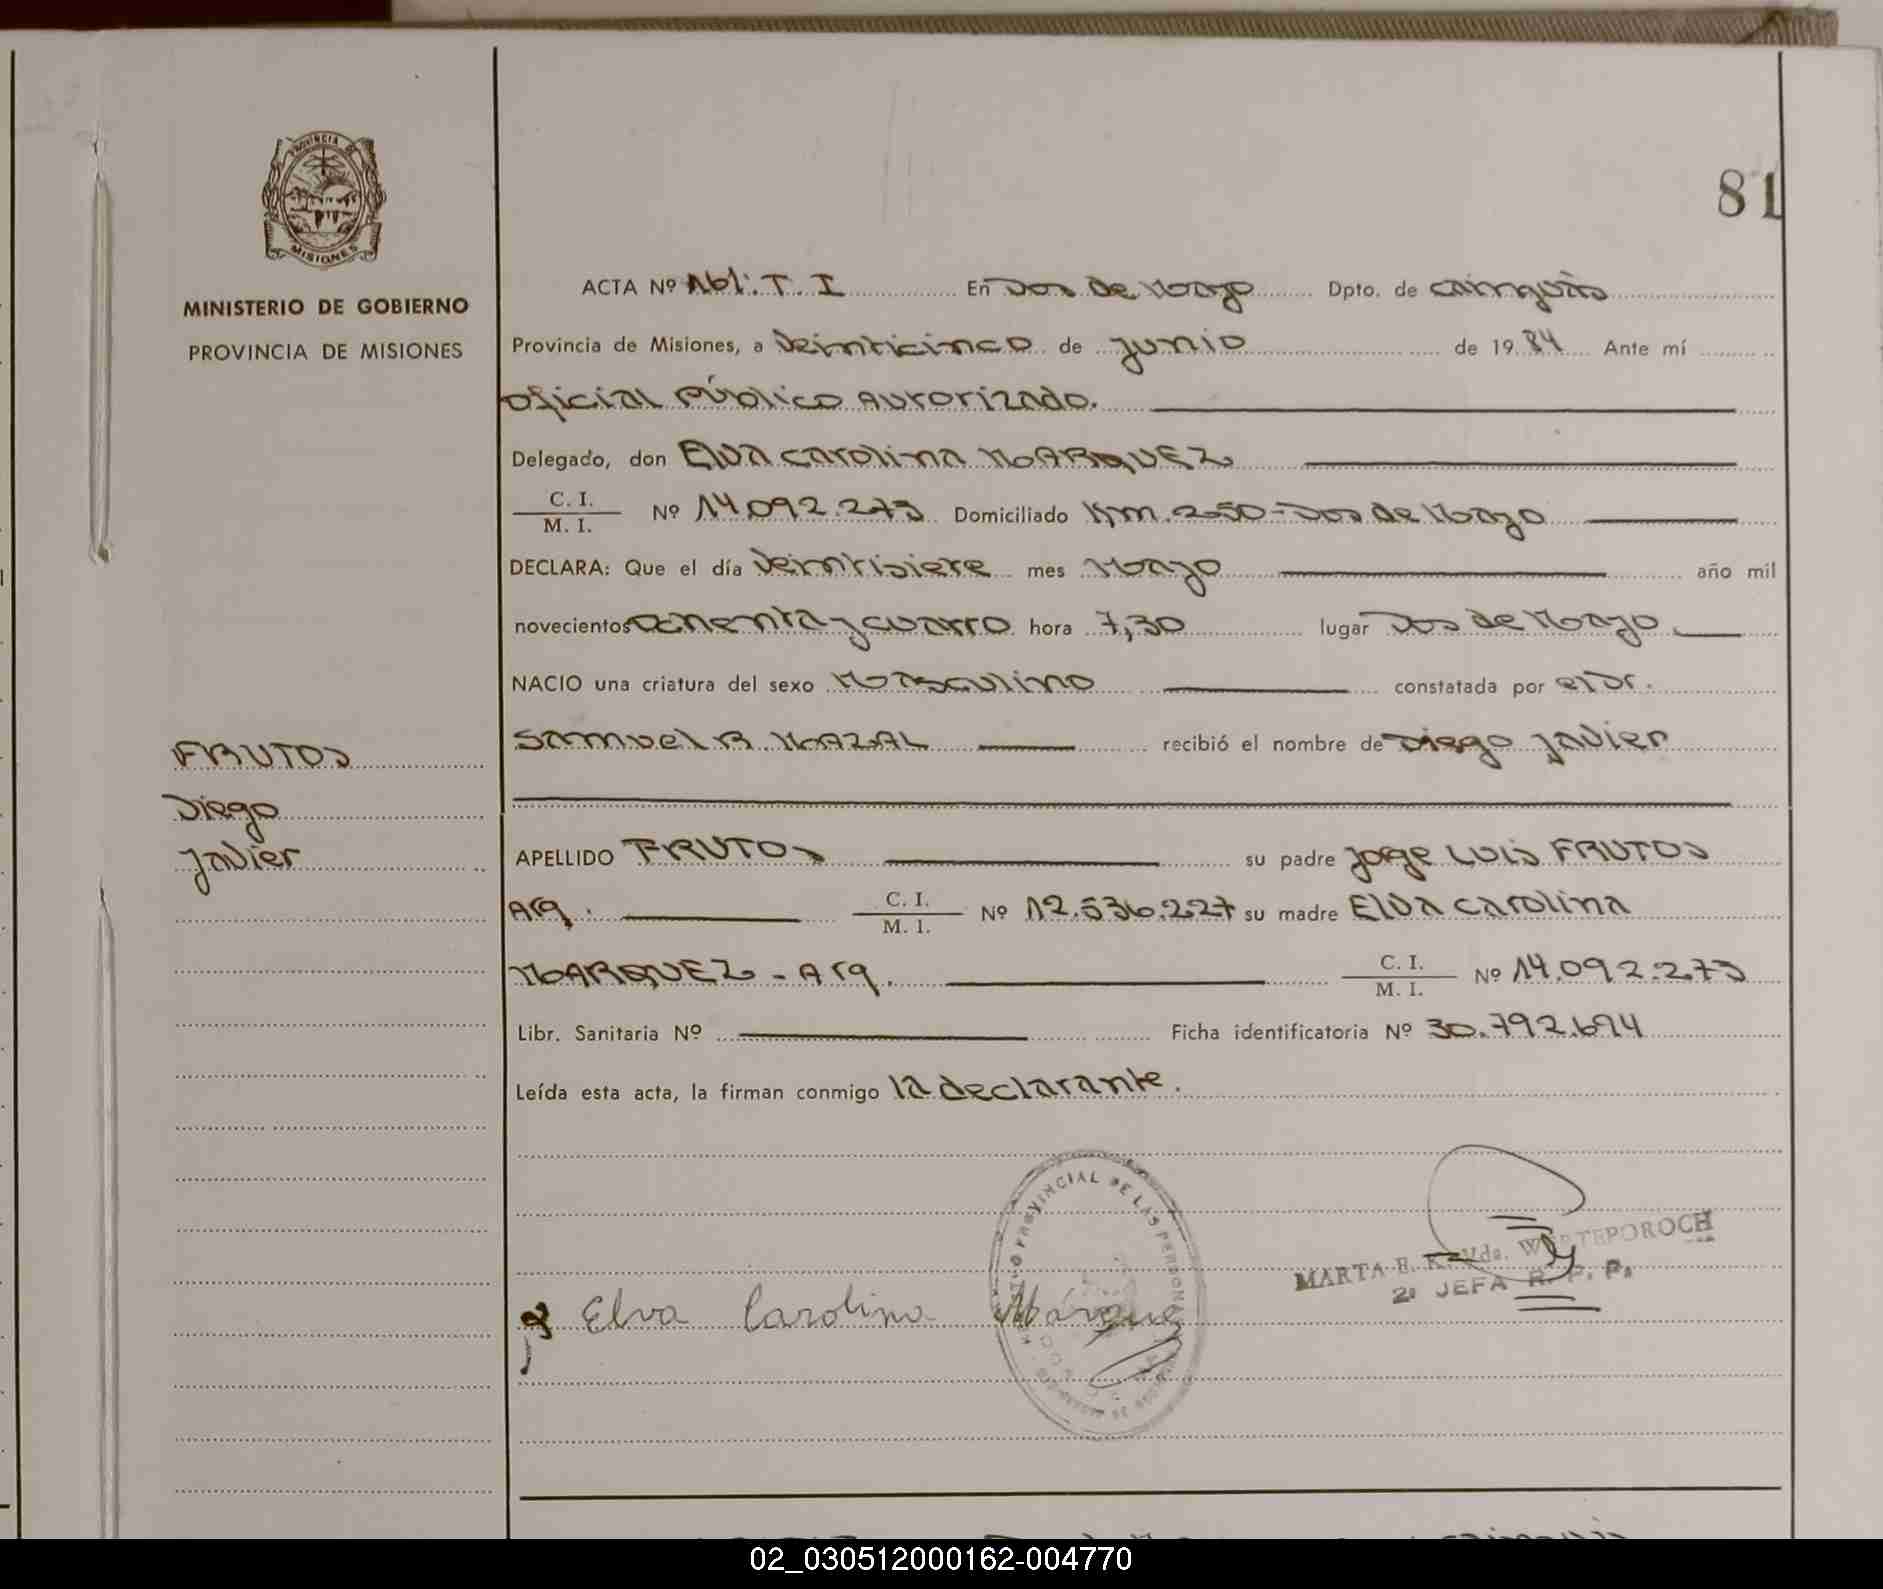 81
PROVINCIA DE
MISIONES
MINISTERIO DE GOBIERNO
PROVINCIA DE MISIONES
FRUTOS
Diego
Javier
ACTA Nº 161: T. I En Dos de Mayo Dpto. de Cainguás
Provincia de Misiones, a Veinticinco de Junio de 1984 Ante mí
oficial Público Autorizado.
Delegado, don Elva Carolina MARQUEZ
C. I.
M. I. Nº 14.092.273 Domiciliado Km. 250-Dos de Mayo
DECLARA: Que el día Veintisiete mes Mayo año mil
novecientos ochenta y cuatro hora 7,30 lugar Dos de Mayo
NACIO una criatura del sexo Masculino constatada por el Dr.
Samuel R MAZAL recibió el nombre de Diego Javier
APELLIDO FRUTOS su padre Jorge Luis FRUTOS
Arg. C. I.
M. I. Nº 12.536.227 su madre Elva Carolina
MARQUEZ - Arg. C. I.
M. I. Nº 14.092.273
Libr. Sanitaria Nº Ficha identificatoria Nº 30.792.694
Leída esta acta, la firman conmigo la declarante.
PROVINCIAL DE LAS PERSONAS
MARTA E. K. Vda. WERTEPOROCH
2ª JEFA R. P. P.
Elva Carolina Márquez
02_030512000162-004770